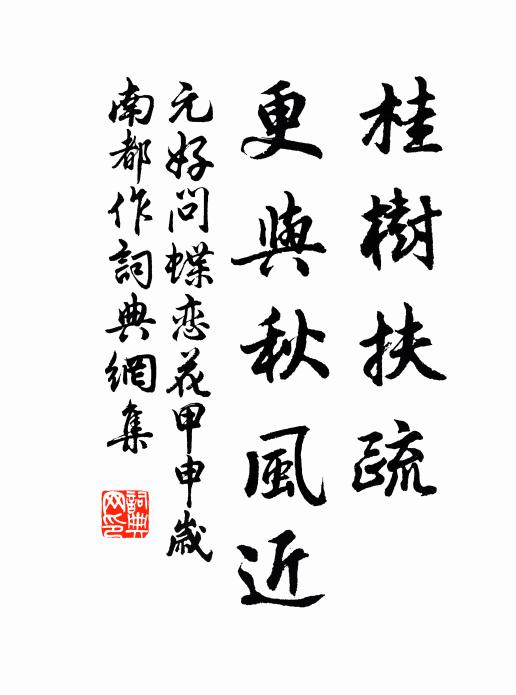 桂樹扶疏
更與秋風近
元好問蝶恋花甲申歲
南都作詞典網集
詞典網印